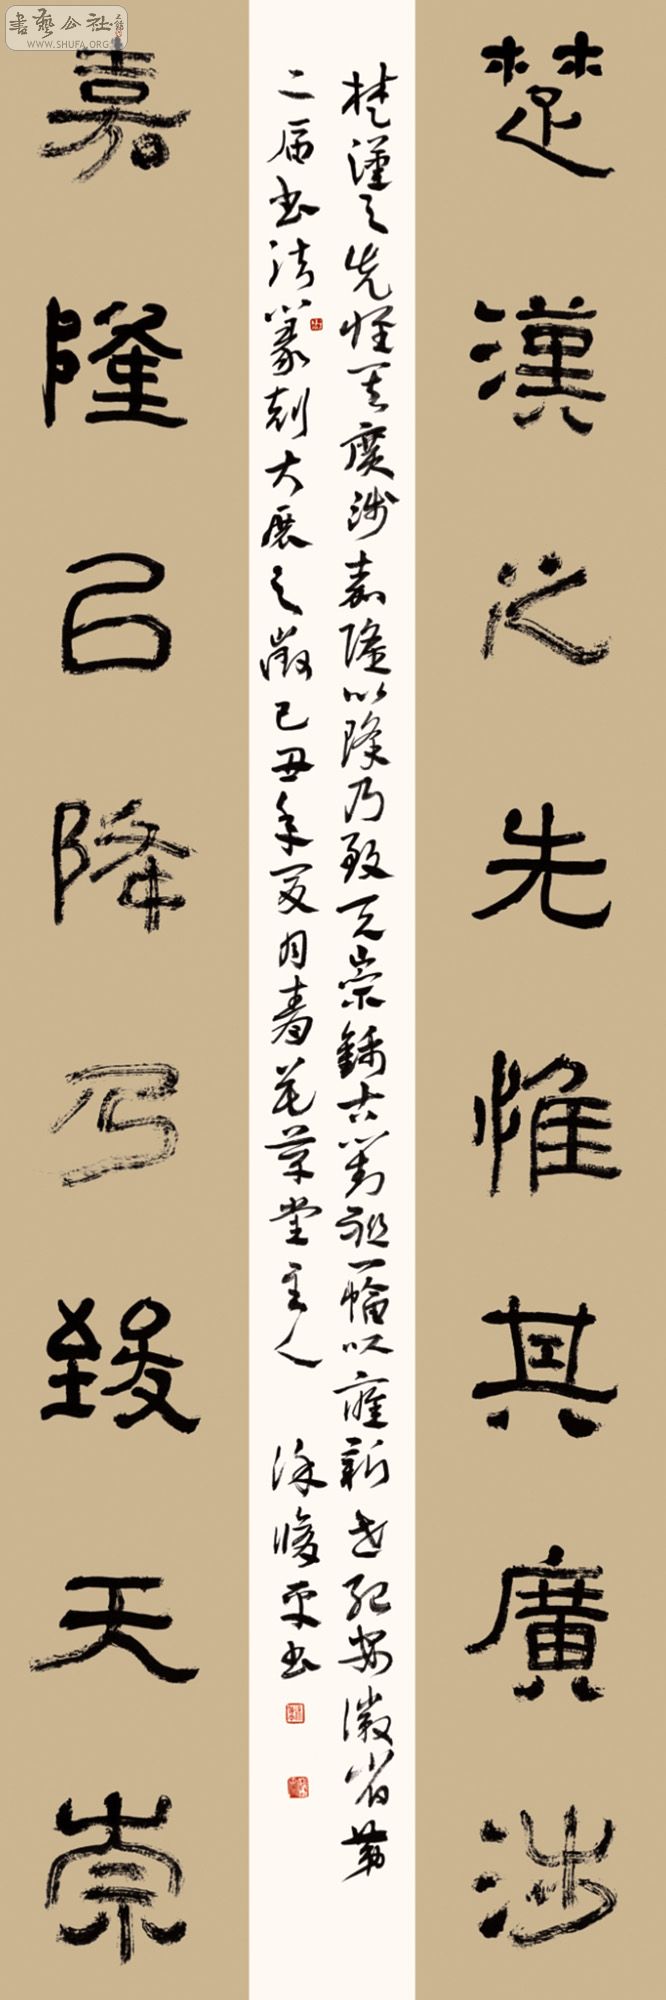 楚漢之先惟其廣涉
楚漢之先惟其廣涉嘉隆以降乃致天崇錦古以對祖一幅以應新世紀安徽省第
二届書法篆刻大展之徵己丑年夏月春花草堂主人 徐俊平書
嘉隆以降乃致天崇
書藝公社
WWW.SHUFA.ORG